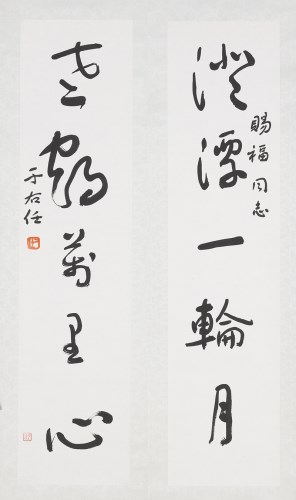 澄潭一輪月
賜福同志
老鶴萬里心
于右任